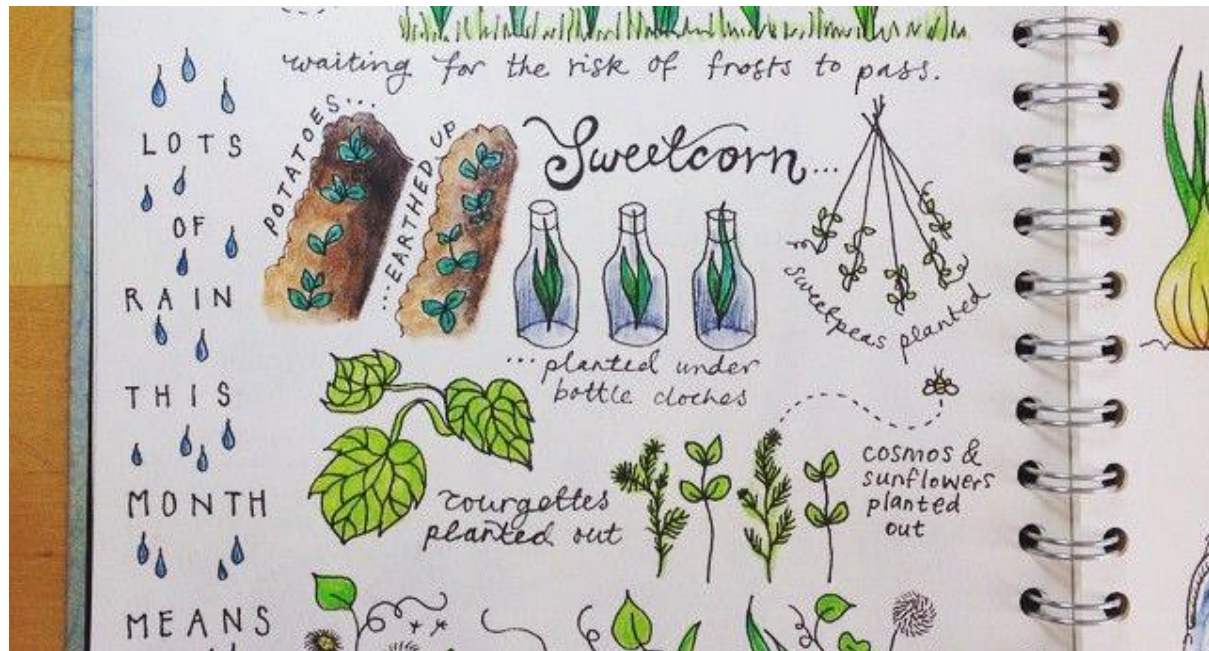 waiting for the risk of frosts to pass.
LOTS
OF
RAIN
THIS
MONTH
MEANS
POTATOES...
...EARTHED UP
Sweetcorn...
...planted under
bottle cloches
sweetpeas planted
courgettes
planted out
cosmos &
sunflowers
planted
out